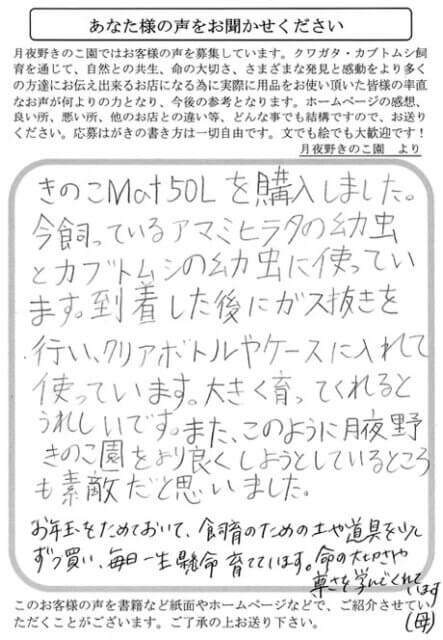 あなた様の声をお聞かせください
月夜野きのこ園ではお客様の声を募集しています。クワガタ・カブトムシ飼
育を通じて、自然との共生、命の大切さ、さまざまな発見と感動をより多く
の方達にお伝え出来るお店になる為に実際に用品をお使い頂いた皆様の率直
なお声が何よりの力となり、今後の参考となります。ホームページの感想、
良い所、悪い所、他のお店との違い等、どんな事でも結構ですので、お送り
ください。応募はがきの書き方は一切自由です。文でも絵でも大歓迎です！
月夜野きのこ園　より
きのこMat50Lを購入しました。
今飼っているアマミヒラタの幼虫
とカブトムシの幼虫に使ってい
ます。到着した後にガス抜きを
行い、クリアボトルやケースに入れて
使っています。大きく育ってくれると
うれしいです。また、このように月夜野
きのこ園をより良くしようとしているところ
も素敵だと思いました。
お年玉をためておいて、飼育のための土や道具を少し
ずつ買い、毎日一生懸命育てています。命の大切さや
尊さを学んでくれて
います
(母)
このお客様の声を書籍など紙面やホームページなどで、ご紹介させてい
ただくことがございます。ご了承の上お送り下さい。